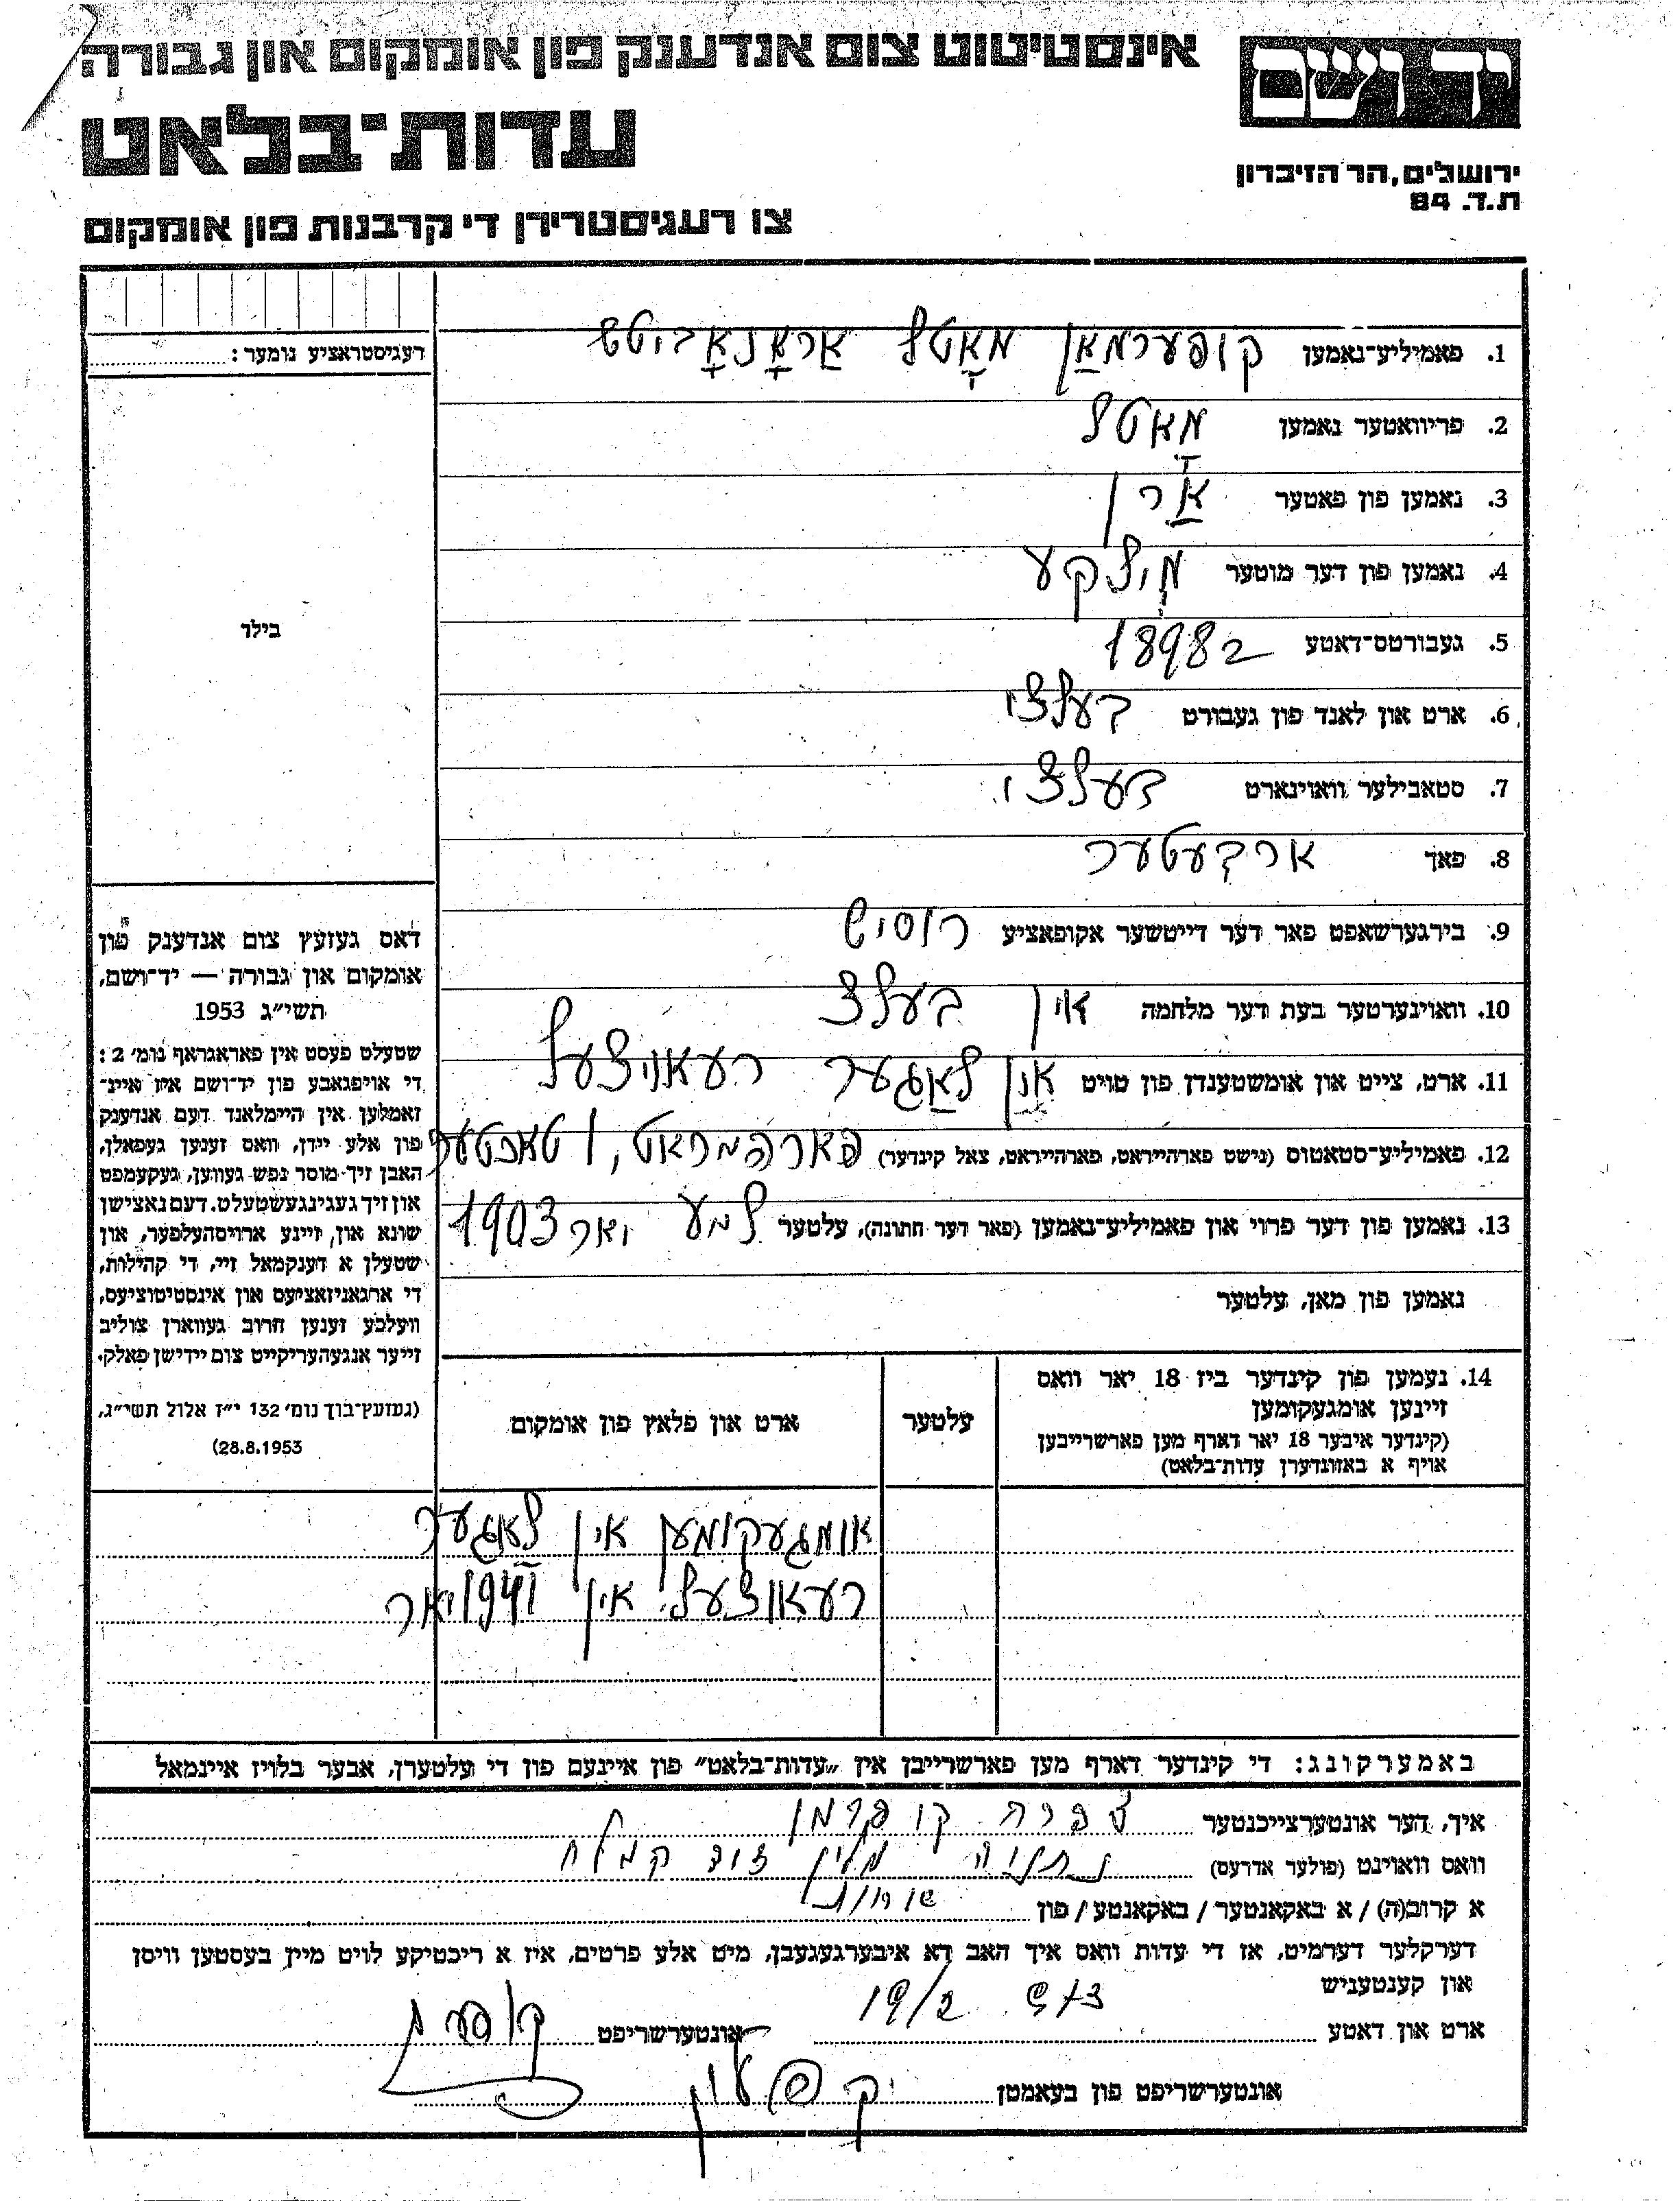 יד ושם
אינסטיטוט צום אנדענק פון אומקום און גבורה
עדות־בלאט
ירושלים, הר הזיכרון
ת.ד. 84
צו רעגיסטרירן די קרבנות פון אומקום
רעגיסטראציע נומער:
בילד
1. פאמיליע־נאמען קופערמאַן מאָטל אַראָנאָביטש
2. פריוואטער נאמען מאָטל
3. נאמען פון פאטער אַרן
4. נאמען פון דער מוטער מילקע
5. געבורטס־דאטע 1898
6. ארט און לאנד פון געבורט בעלצי
7. סטאבילער וואוינארט בעלצי
8. פאך ארבעטער
9. בירגערשאפט פאר דער דייטשער אקופאציע רוסיש
10. וואוינערטער בעת דער מלחמה אין בעלצ
11. ארט, צייט און אומשטענדן פון טויט אין לאַגער רעאוצעל
12. פאמיליע־סטאטוס (נישט פארהייראט, פארהייראט, צאל קינדער) 1 טאכטער
13. נאמען פון דער פרוי און פאמיליע־נאמען (פאר דער חתונה), עלטער יאר 1903
נאמען פון מאן, עלטער
דאס געזעץ צום אנדענק פון
אומקום און גבורה — יד־ושם,
תשי״ג 1953
שטעלט פעסט אין פאראגראף נומ׳ 2:
די אויפגאבע פון יד־ושם איז איינ־
זאמלען אין היימלאנד דעם אנדענק
פון אלע יידן, וואס זענען געפאלן,
האבן זיך מוסר נפש געווען, געקעמפט
און זיך געגינגעשטעלט. דעם נאצישן
שונא און זיינע ארויסהעלפער, און
שטעלן א דענקמאל זיי, די קהילות,
די ארגאניזאציעס און אינסטיטוציעס,
וועלכע זענען חרוב געווארן צוליב
זייער אנגעהעריקייט צום יידישן פאלק.
(געזעץ־בוך נומ׳ 132 י״ז אלול תשי״ג,
28.8.1953)
14. נעמען פון קינדער ביז 18 יאר וואס
זיינען אומגעקומען
(קינדער איבער 18 יאר דארף מען פארשרייבן
אויף א באזונדערן עדות־בלאט)
עלטער
ארט און פלאץ פון אומקום
אומגעקומען אין לאַגער
רעאוצעל אין 1941 יאר
באמערקונג: די קינדער דארף מען פארשרייבן אין „עדות־בלאט״ פון איינעם פון די עלטערן, אבער בלויז איינמאל
איך, דער אונטערצייכנטער צפרה קופרמן
וואס וואוינט (פולער אדרעס) נתניה
א קרוב(ה) / א באקאנטער / באקאנטע / פון
דערקלער דערמיט, אז די עדות וואס איך האב דא איבערגעגעבן, מיט אלע פרטים, איז א ריכטיקע לויט מיין בעסטען וויסן
און קענטעניש
ארט און דאטע 19/2 אונטערשריפט
אונטערשריפט פון בעאמטן